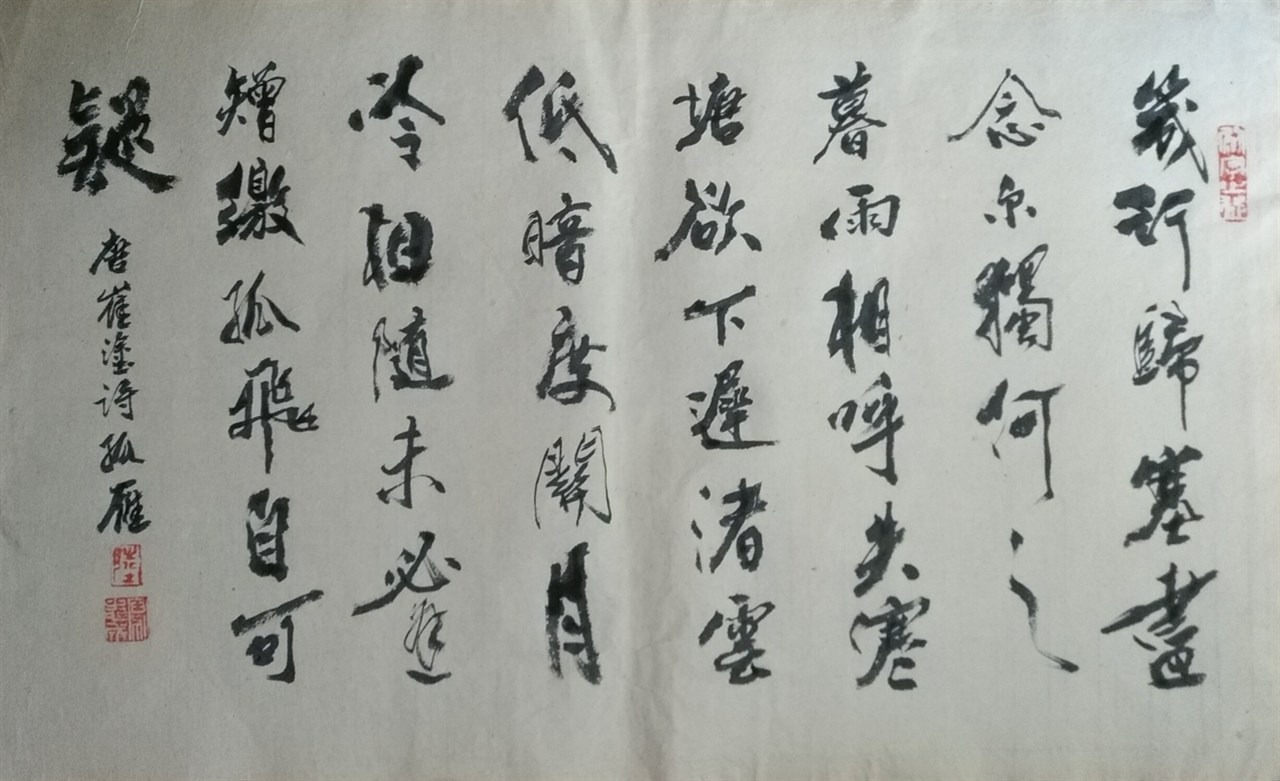 幾行歸塞盡
念尔獨何之
暮雨相呼失寒
塘欲下遲渚雲
低暗度關月
冷相隨未必逢
矰繳孤飛自可
疑
唐崔塗詩孤雁